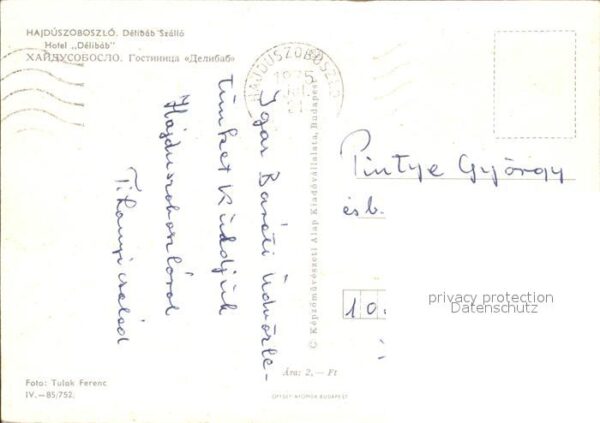 HAJDÚSZOBOSZLÓ. Délibáb Szálló
Hotel „Délibáb”
ХАЙДУСОБОСЛО. Гостиница «Делибаб»
HAJDÚSZOBOSZLÓ
1975
Igaz Baráti Üdvözle-
tünket Küldjük
Hajduszoboszlóról
Tihanyi család
© Képzőművészeti Alap Kiadóvállalata, Budapest
Pintye György
és b.
10.
privacy protection
Datenschutz
Ára: 2,— Ft
Foto: Tulok Ferenc
IV.—85/752.
OFFSET NYOMDA BUDAPEST